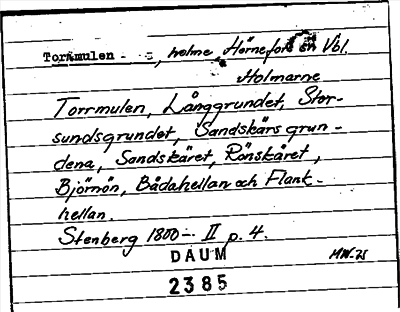 Torrmulen - -, holme, Hörnefors sn Vbl.
Holmarne
Torrmulen, Långgrundet, Stor-
sundsgrundet, Sandskärsgrun-
dena, Sandskäret, Rönskäret,
Björnön, Bådahellan och Flank-
hellan.
Stenberg 1800-- II p. 4.
DAUM
2385